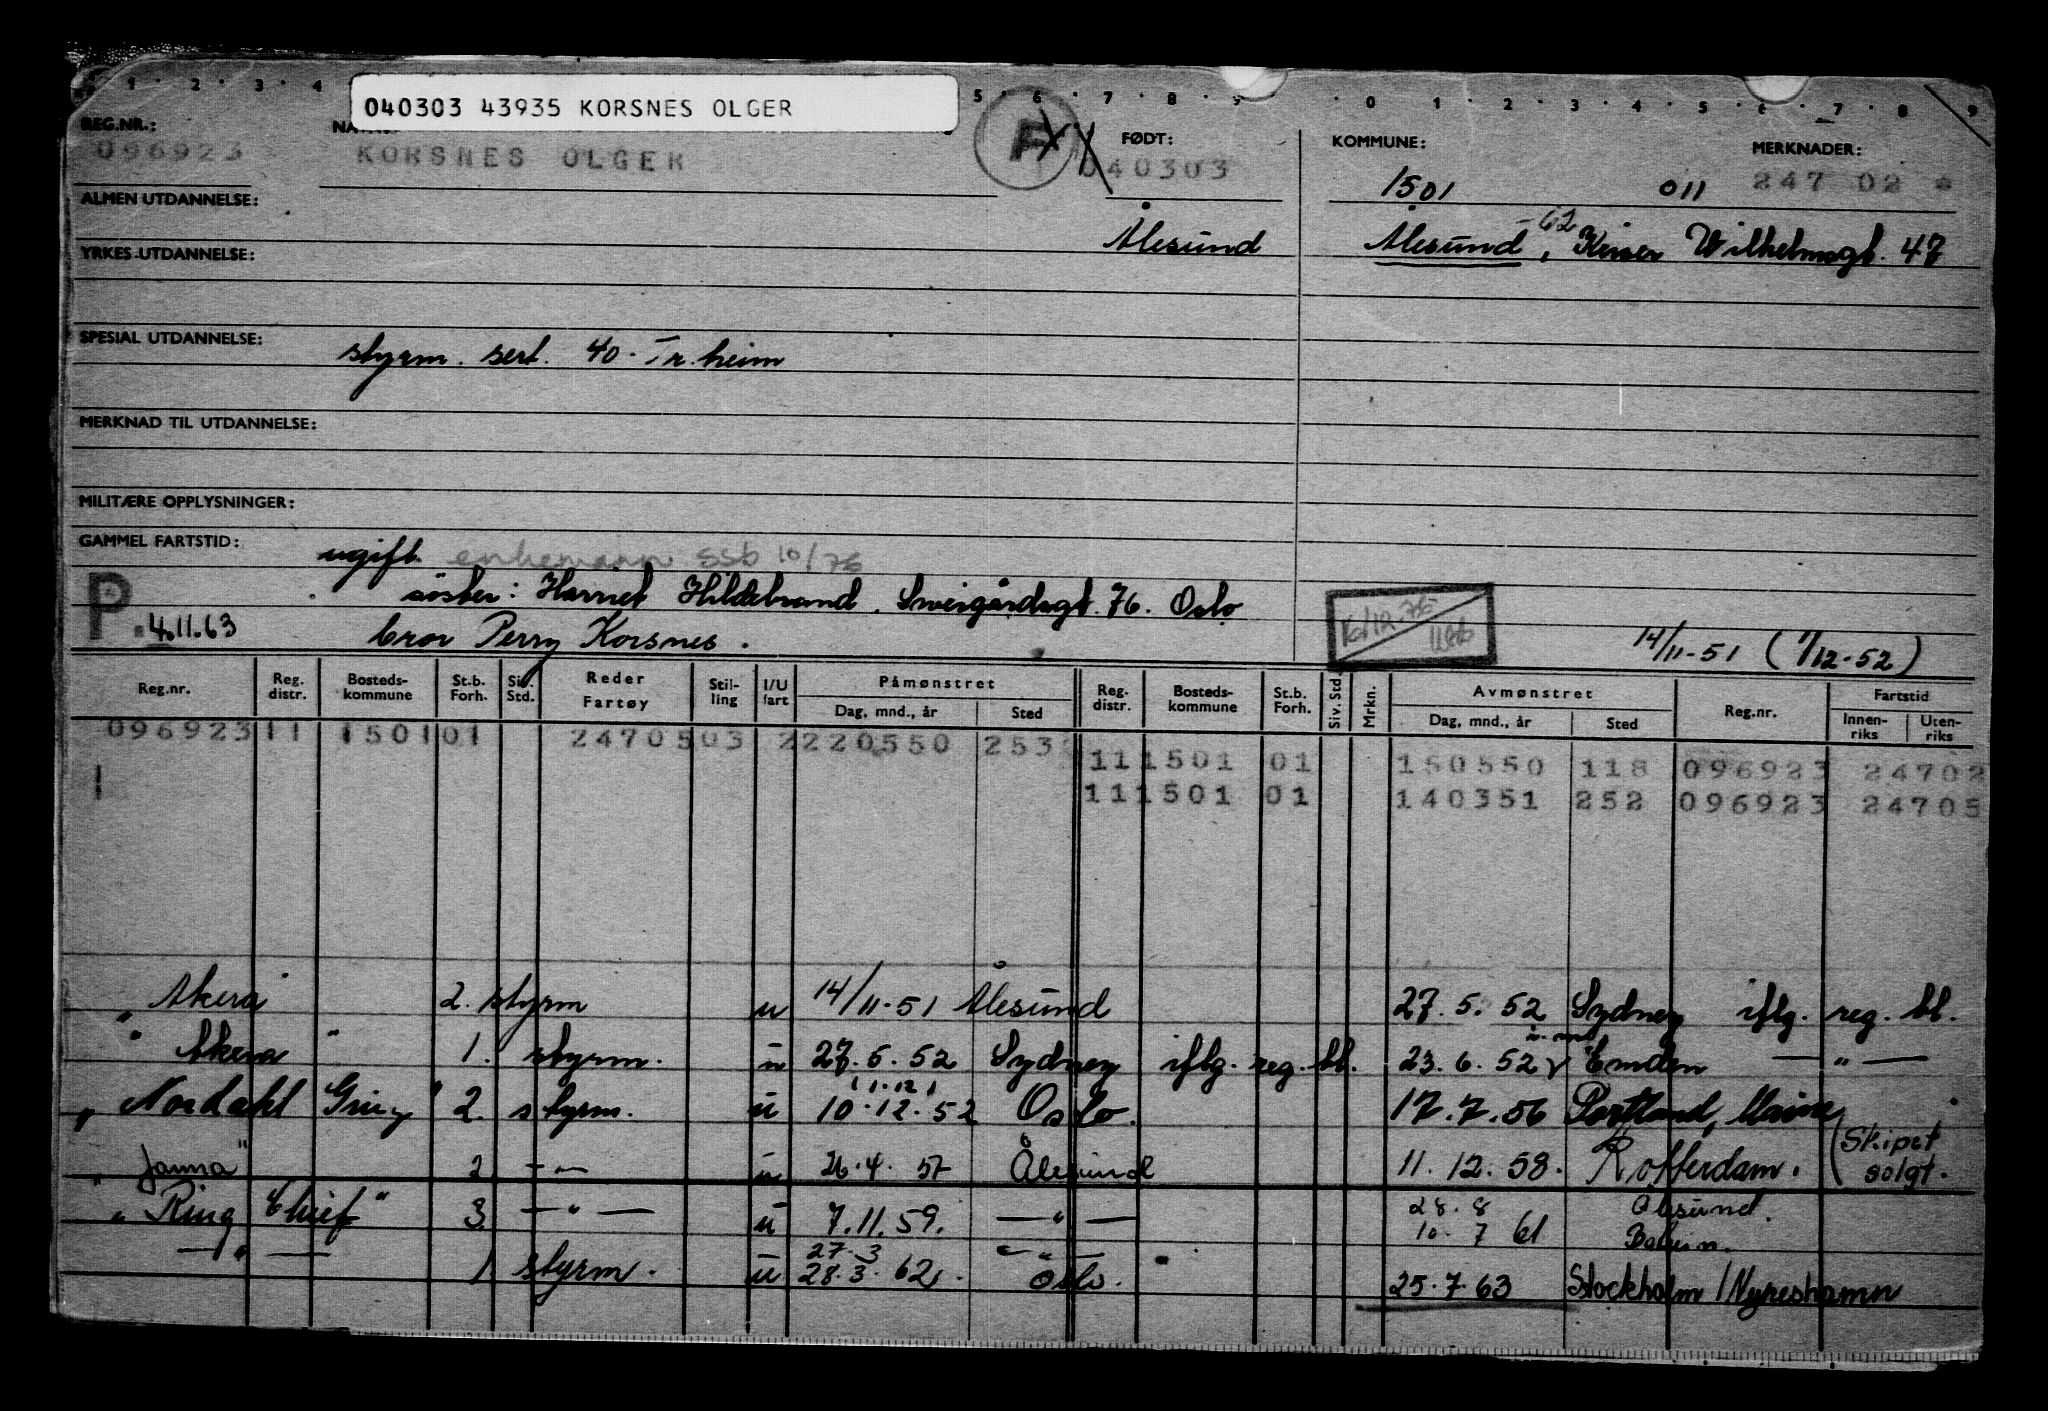 1 · 2 · 3 · 4 5 · 6 · 7 · 8 · 9 · 0 · 1 · 2 · 3 · 4 · 5 · 6 · 7 · 8 · 9
040303 43935 KORSNES OLGER
REG.NR.: FØDT: KOMMUNE: MERKNADER:
096923 KORSNES OLGER F 040303 1501 011 247 02
ALMEN UTDANNELSE: Ålesund Ålesund, -62 Keiser Wilhelmsgt. 47
YRKES-UTDANNELSE:
SPESIAL UTDANNELSE: styrm. sert. 40 - Tr.heim
MERKNAD TIL UTDANNELSE:
MILITÆRE OPPLYSNINGER:
GAMMEL FARTSTID: ugift enkemann SSB 10/76
søster: Harriet Hildebrand. Sweigårdsgt. 76. Oslo
P. 4.11.63 bror Perry Korsnes. 14/11-51 (1/12-52)
Reg.nr. Reg. distr. Bosteds-kommune St.b. Forh. Siv. Std. Reder Fartøy Stil-ling I/U fart Påmønstret Dag, mnd., år Sted Reg. distr. Bosteds-kommune St.b. Forh. Siv. Std. Mrkn. Avmønstret Dag, mnd., år Sted Reg.nr. Fartstid Innen-riks Uten-riks
096923 11 1501 01 24705 03 2 220550 253
11 1501 01 150550 118 096923 24702
11 1501 01 140351 252 096923 24705
" Akera 2. styrm u 14/11-51 Ålesund 27.5.52 Sydney iflg. reg. bl.
" Akera " 1. styrm. u 27.5.52 Sydney iflg. reg. bl. 23.6.52 Emden — " —
(1.12)
" Nordahl Grieg " 2. styrm. u 10.12.52 Oslo. 17.7.56 Portland, Maine
" Janna " 2 — " — u 26.4.57 Ålesund 11.12.58. Rotterdam. (Skipet solgt.
" Ring Chief " 3. — " — u 7.11.59. — " — 28.8 Ålesund.
10.7 61
— " — 1 styrm. u 27.3 — " —
28.3.62. Oslo. 25.7.63 Stockholm / Nyneshamn